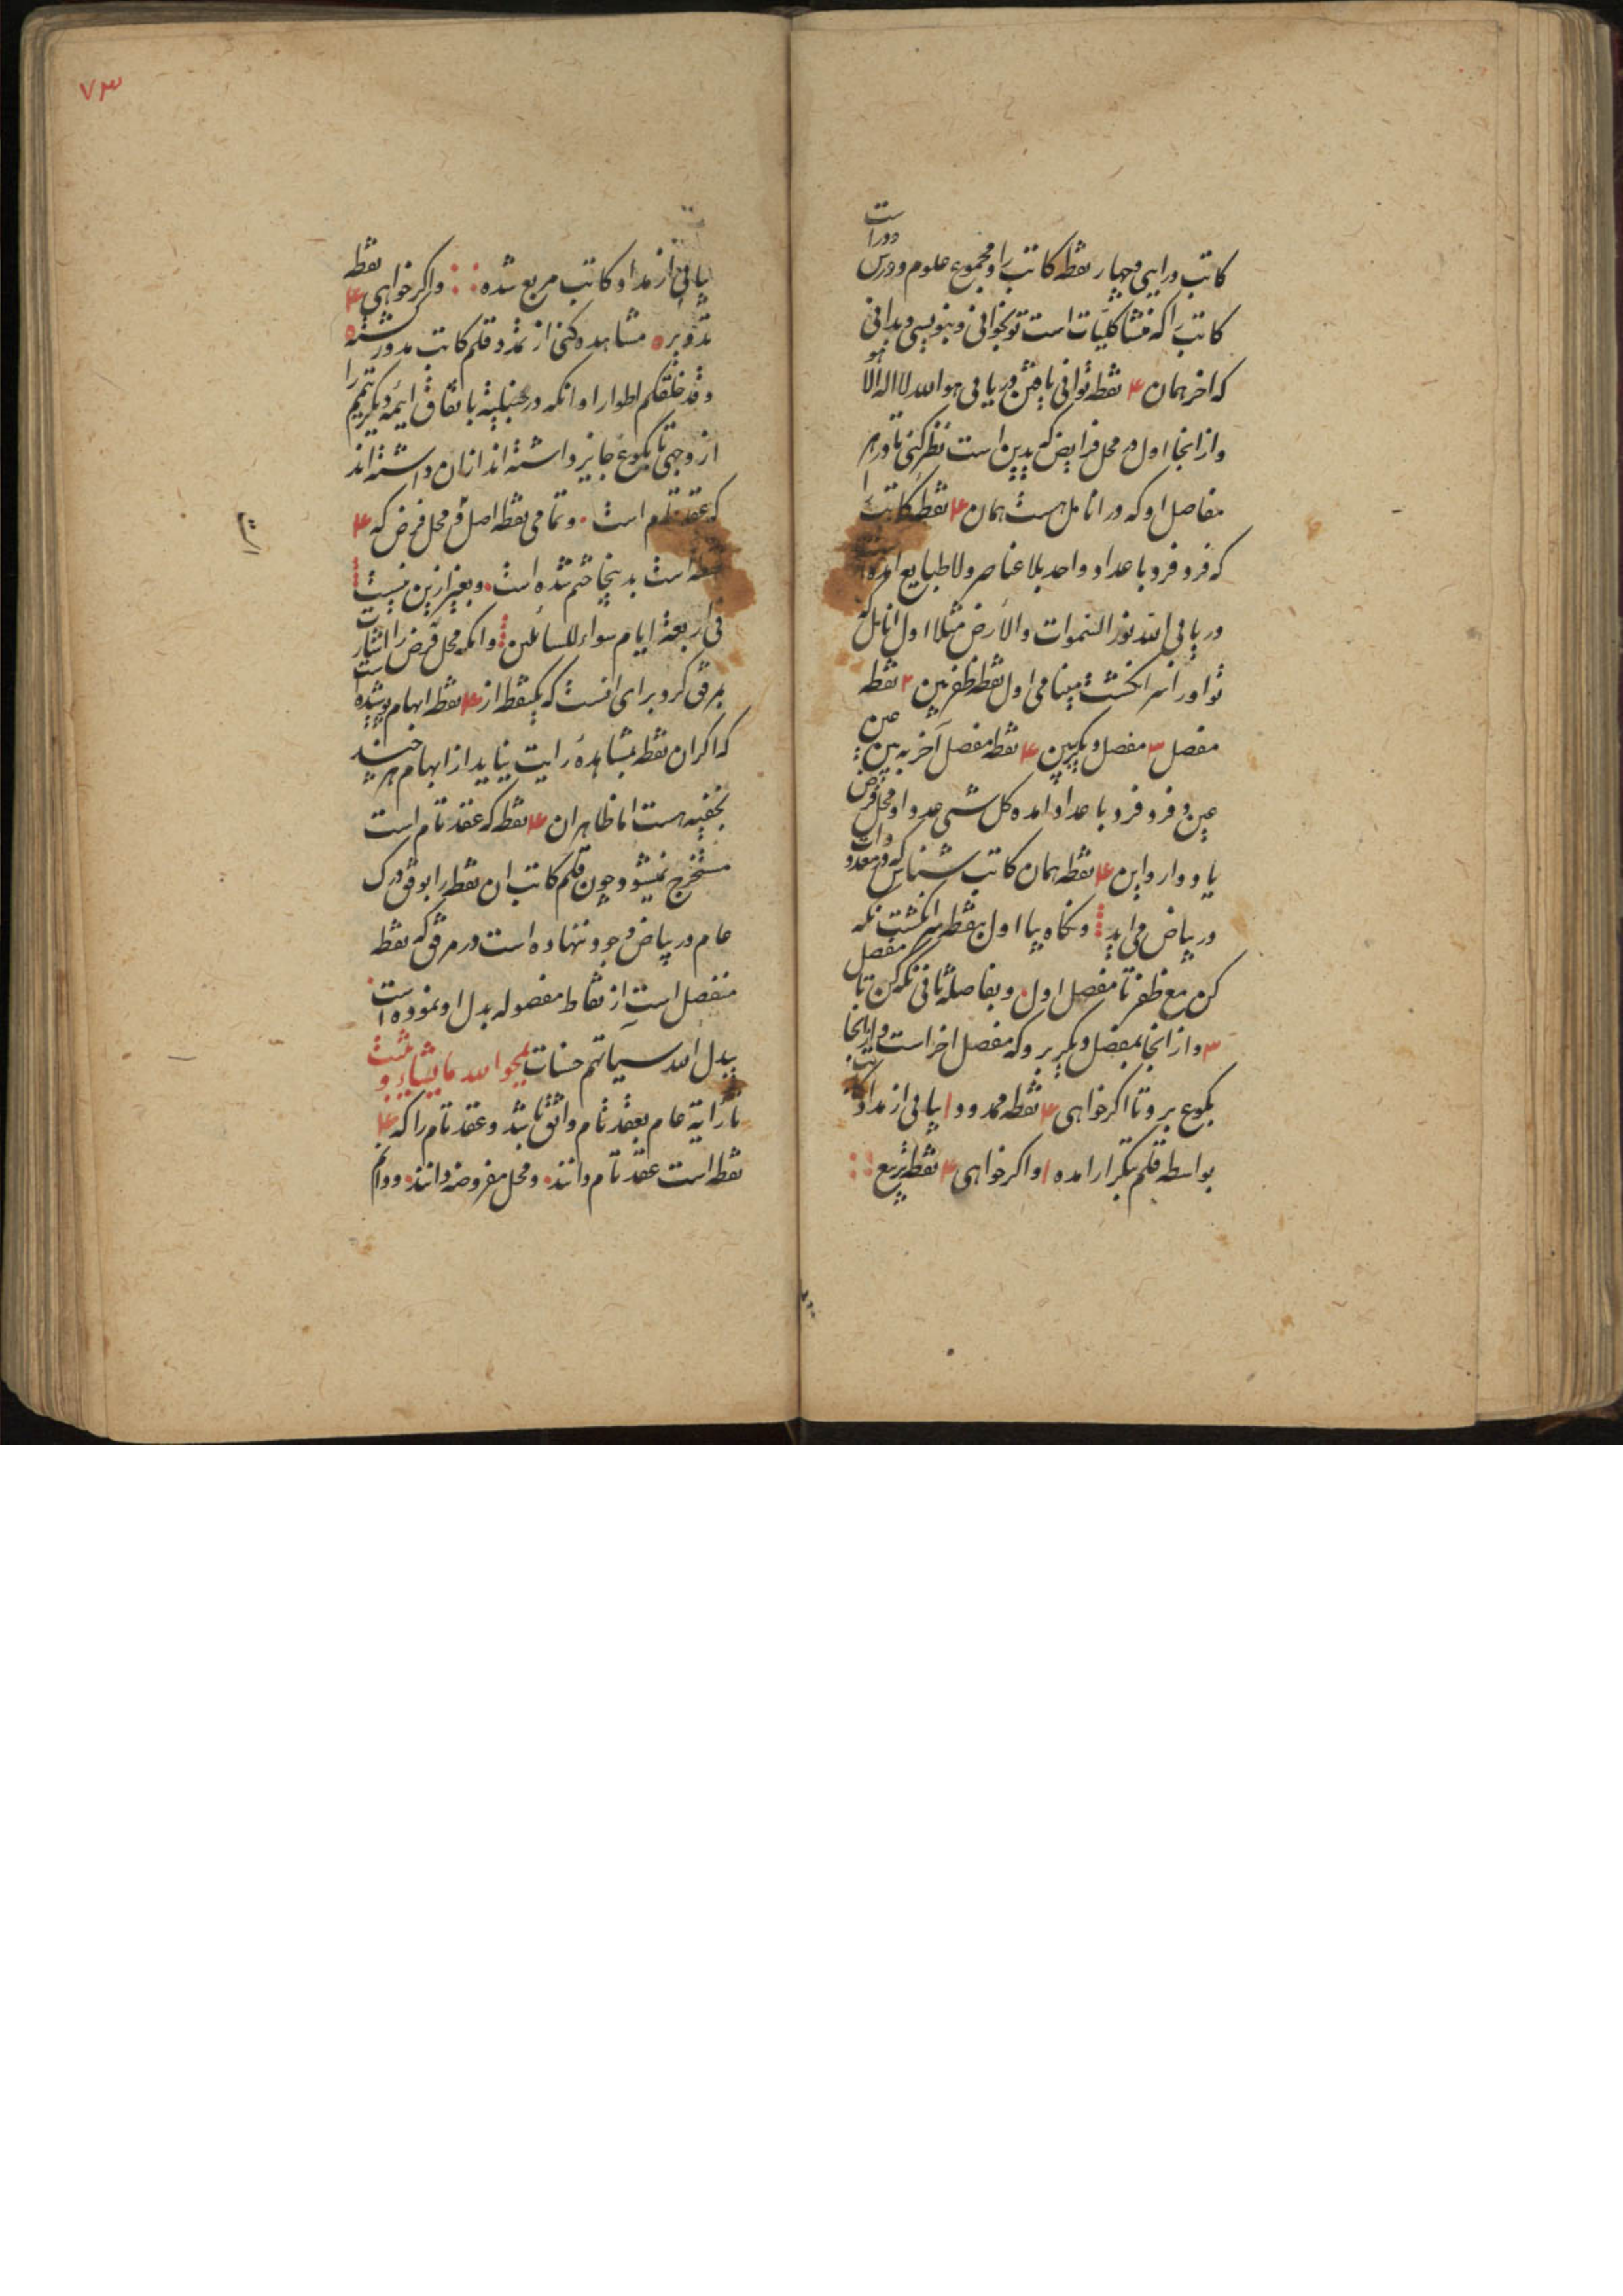 کاتب درایی و چهار نقطه کاتب را و مجموع علوم و درس
دوراست
کاتب را که منشا کلیات است تو بخوانی و بنویسی و بدانی
که اخر همان ۴ نقطه توانی یافتن دریابی هو الله لا اله الا هو
و از انجا اول در محل فرایض که یدین است نظر کنی تا در هر
مفاصل او که در انامل هست همان ۴ نقطه کاتب را
که فرد فرد با عداد واحد بلا عناصر ولا طبایع امده
دریابی الله نور السموات والارض مثلا اول انامل که
تو او را سر انکشت مینامی اول نقطه ظفر بین ۲ نقطه
مفصل ۳ مفصل دیکر بین ۴ نقطه مفصل آخر به بین عین
عین و فرد فرد با عداد امده کل شی عددا و محل فرض
یاد دار و این ۴ نقطه همان کاتب شناس که در معدودات
در بیاض می اید و نکاه بیا اول بنقطه سر انکشت نکه
کن مع ظفر تا مفصل اول و بفاصله ثانی نکه کن تا مفصل
۳ و از انجا بمفصل دیکر بر و که مفصل اخر است و از انجا
بکوع بر و تا اکر خواهی ۴ نقطه ممدود ا یابی از مداد کاتب
بواسطه قلم بتکرار امده ا و اکر خواهی ۴ نقطه تربیع
۷۳
یابی از مداد کاتب مربع شده و اکر خواهی ۴ نقطه
تدویر مشاهده کنی از تمدد قلم کاتب مدور شده
و قد خلقکم اطوارا و انکه در حنبلیه باتفاق ایمه دیکر تیمم را
از وجهی تا بکوع جایز داشته اند ازان داشته اند
که عقد تام است و تمامی نقطه اصل در محل فرض که ۴
نقطه است بدینجا ختم شده است و بغیر ازین نیست
فی اربعة ایام سواء للسائلین و انکه محل فرض را اشارت
بمرفق کرد برای انست که یکنقطه از ۴ نقطه ابهام پوشیده است
که اکر ان نقطه بمشاهده رایت نیاید از ابهام هر چند
بخفیه هست اما ظاهر ان ۴ نقطه که عقد تام است
مستخرج نمیشود چون قلم کاتب ان نقطه را بوفق درک
عام در بیاض وجود ننهاده است در مرفق که نقطه
منفصل است از نقاط مفصوله بدل او نموده است
یبدل الله سیاتهم حسنات یمحوا الله ما یشاء و یثبت
تا رایة عام بعقد تام واثق باشد و عقد تام را که ۴
نقطه است عقد تام دانند و محل مفروضه دانند و دانم